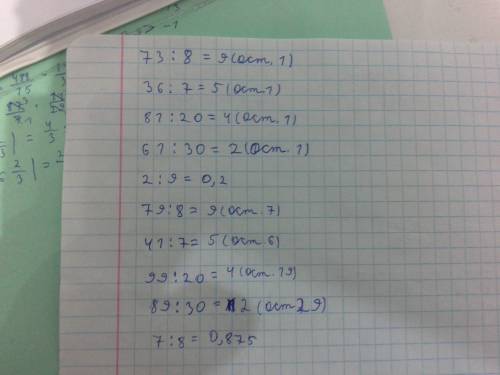 73 : 8 = 9 (ост. 1)
36 : 7 = 5 (ост. 1)
81 : 20 = 4 (ост. 1)
61 : 30 = 2 (ост. 1)
2 : 9 = 0,2
79 : 8 = 9 (ост. 7)
41 : 7 = 5 (ост. 6)
99 : 20 = 4 (ост. 19)
89 : 30 = 2 (ост 29)
7 : 8 = 0,875